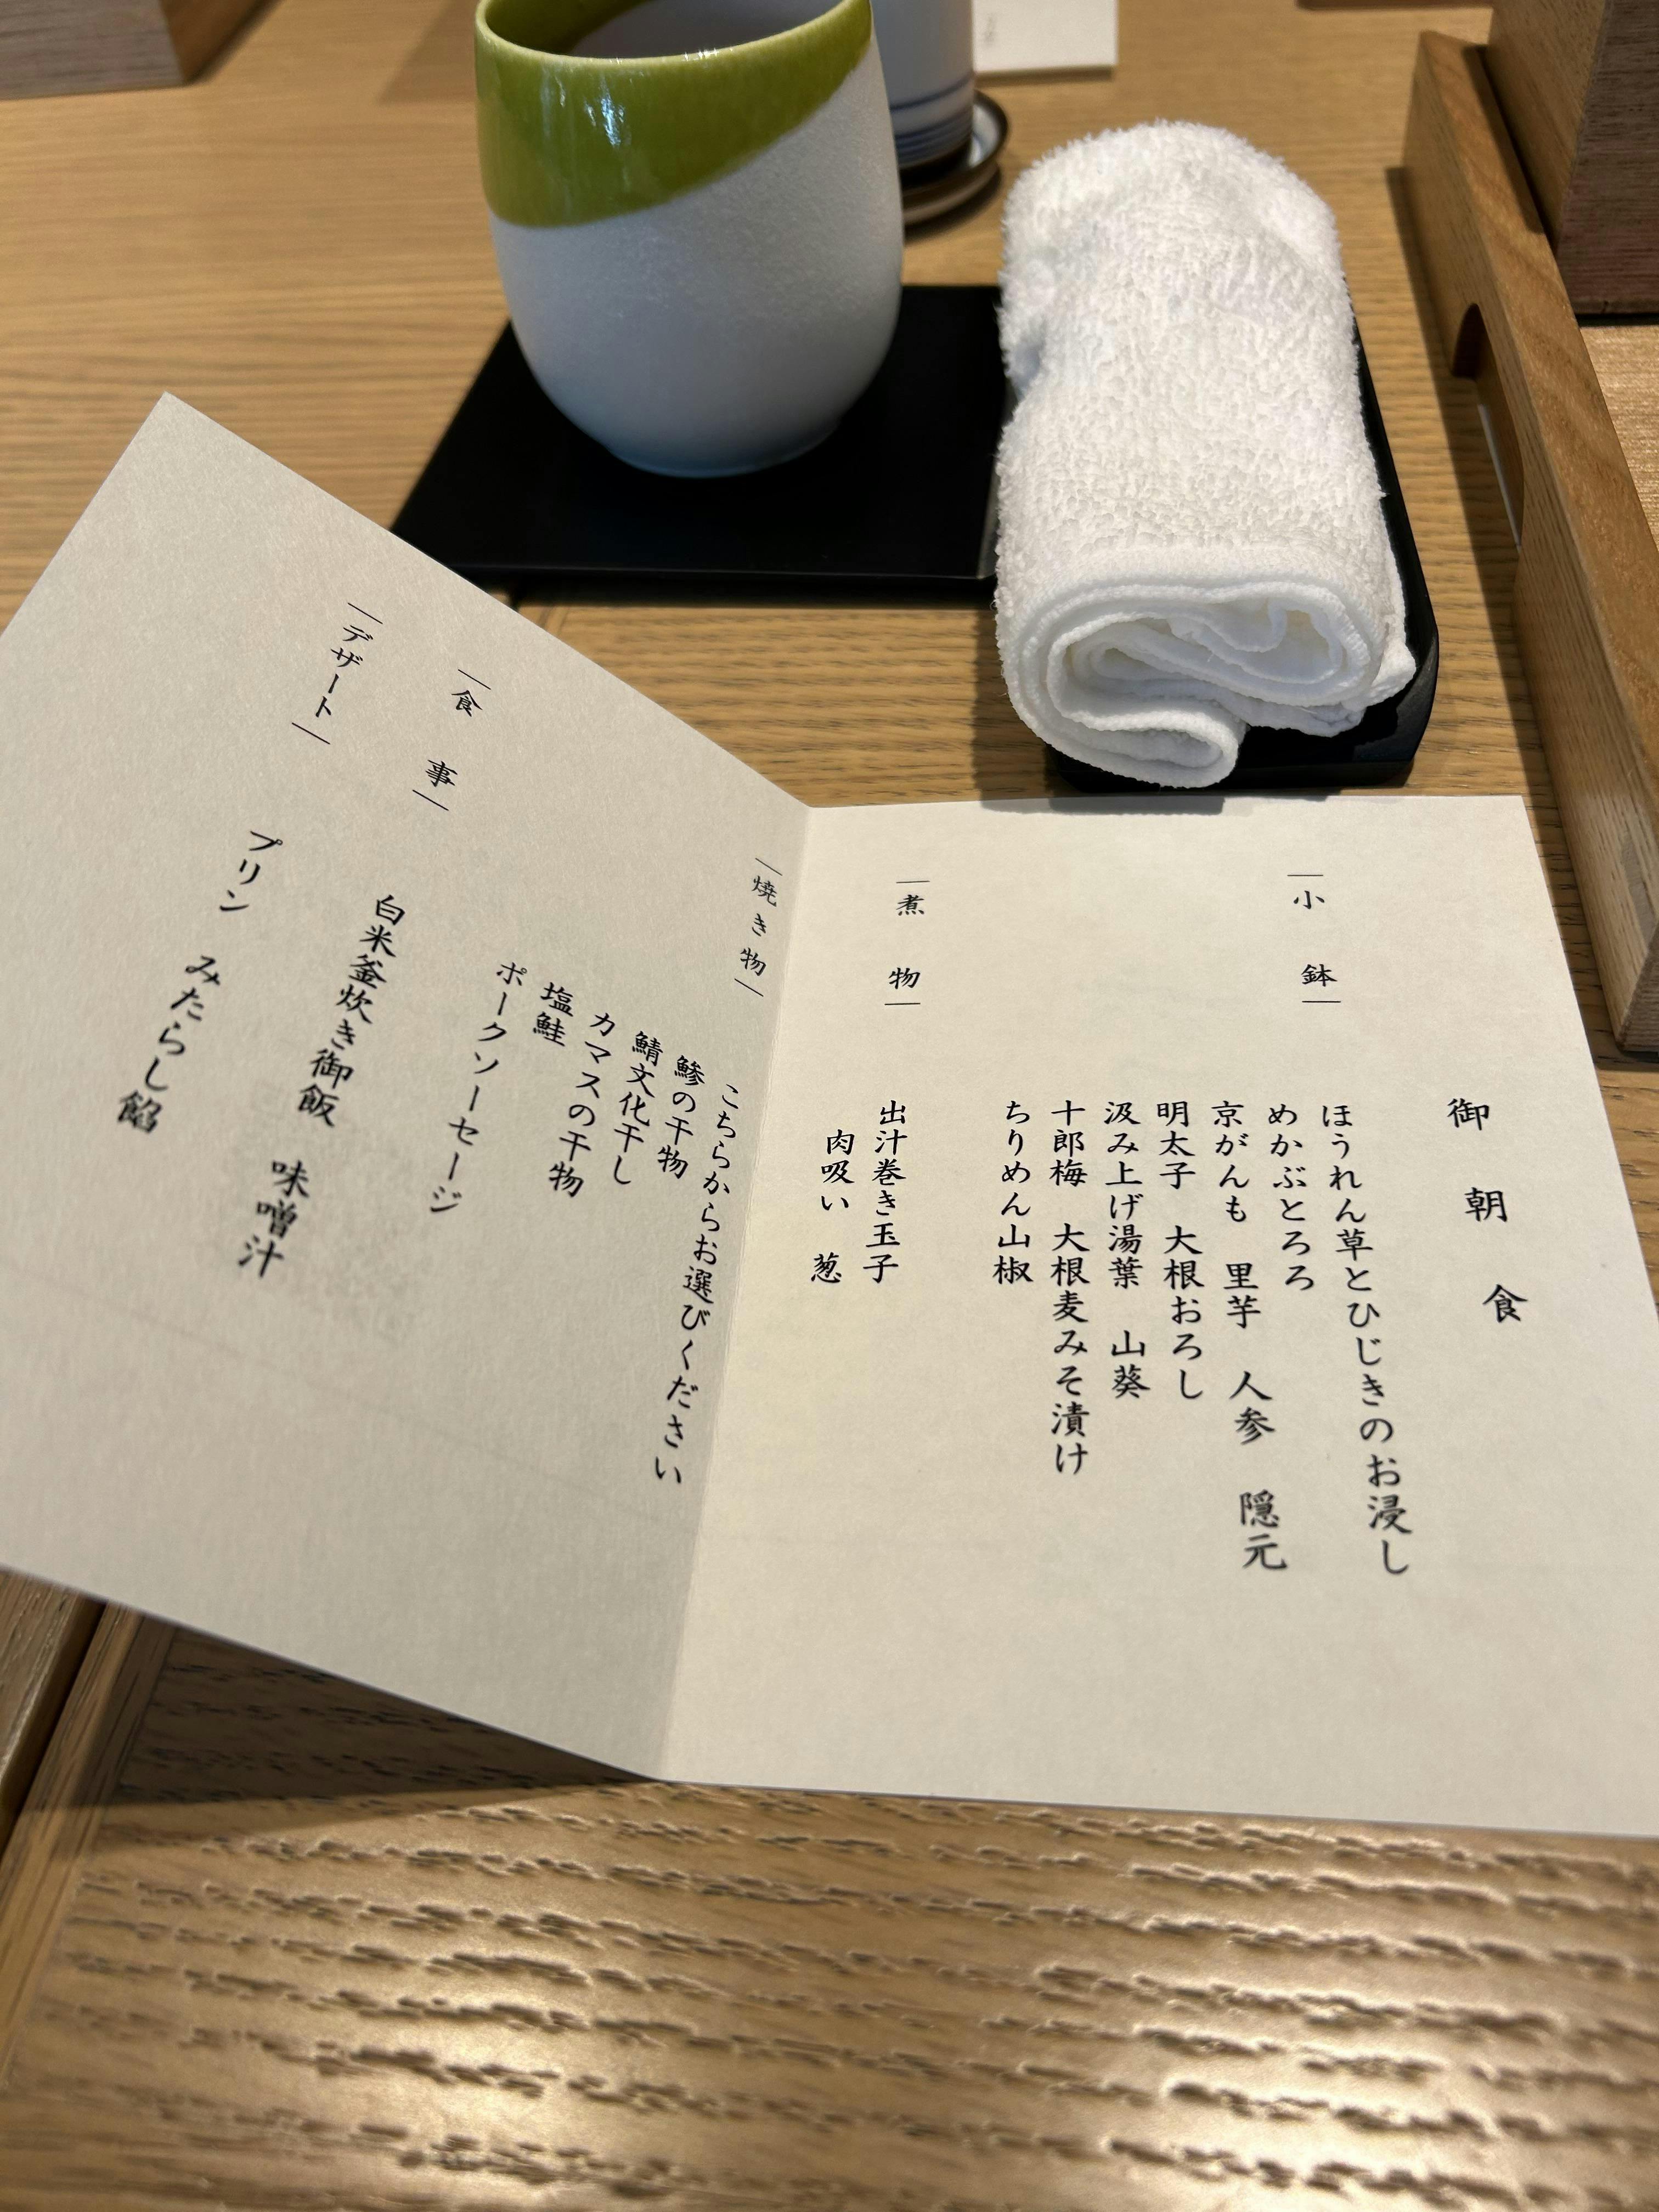 御朝食
小鉢
ほうれん草とひじきのお浸し
めかぶとろろ
京がんも　里芋　人参　隠元
明太子　大根おろし
汲み上げ湯葉　山葵
十郎梅　大根麦みそ漬け
ちりめん山椒
煮物
出汁巻き玉子
肉吸い　葱
焼き物
こちらからお選びください
鯵の干物
鯖文化干し
カマスの干物
塩鮭
ポークソーセージ
食事
白米釜炊き御飯　味噌汁
デザート
プリン　みたらし餡